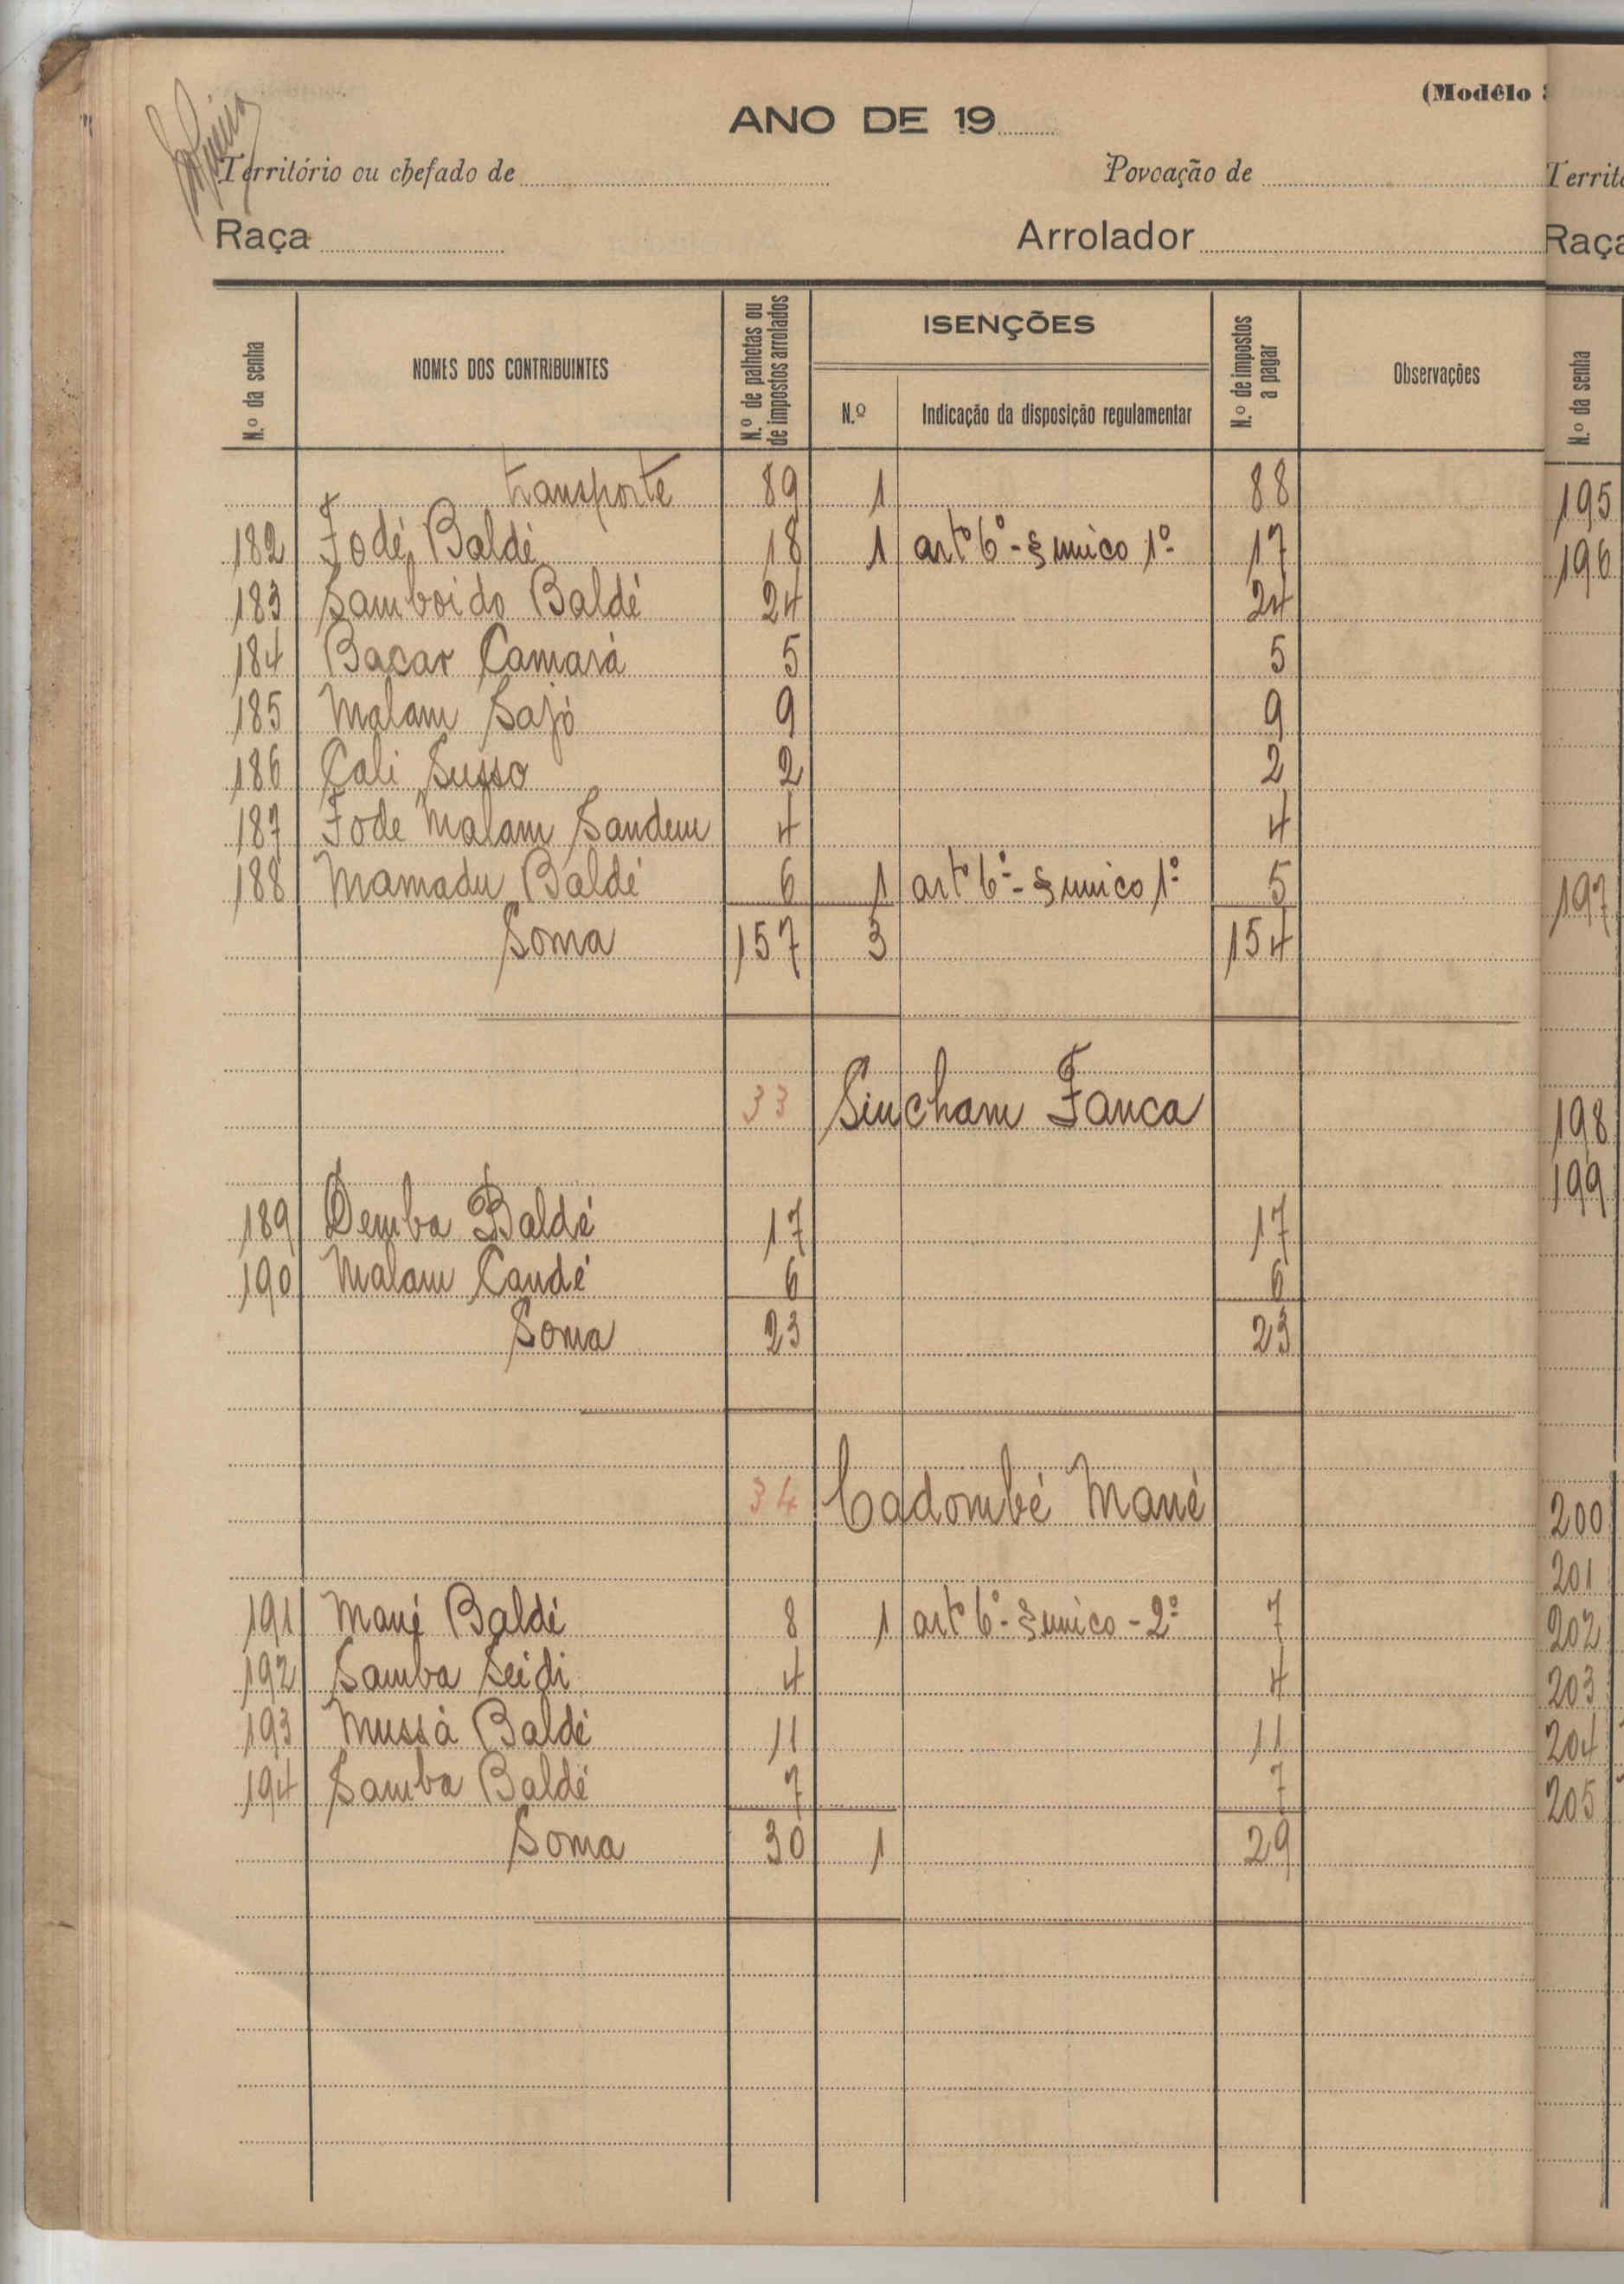 (Modêlo
ANO DE 19
Território ou chefado de Povoação de
Raça Arrolador
N.º da senha NOMES DOS CONTRIBUINTES N.º de palhotas ou de impostos arrolados ISENÇÕES N.º de impostos a pagar Observações
N.º Indicação da disposição regulamentar
transporte 89 1 88
182 Fodé Baldé 18 1 artº 6º - § unico 1º 17
183 Samboido Baldé 24 24
184 Bacar Camará 5 5
185 Malam Sajó 9 9
186 Cali Susso 2 2
187 Fode Malam Sandem 4 4
188 Mamadu Baldé 6 1 artº 6º - § unico 1º 5
Soma 157 3 154
33 Sincham Fanca
189 Demba Baldé 17 17
190 Malam Candé 6 6
Soma 23 23
34 Cadombé Mané
191 Mané Baldé 8 1 artº 6º - § unico - 2º 7
192 Samba Seidi 4 4
193 Mussá Baldé 11 11
194 Samba Baldé 7 7
Soma 30 1 29
Territ
Raça
N.º da senha
195
196
197
198
199
200
201
202
203
204
205